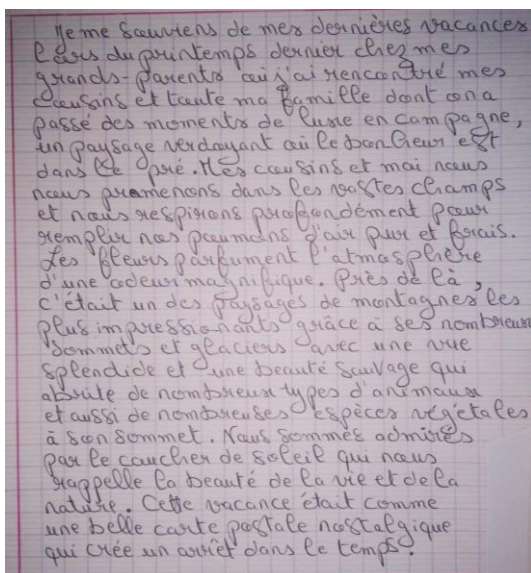 Je me souviens de mes dernières vacances
Lors du printemps dernier chez mes
grands-parents où j'ai rencontré mes
cousins et toute ma famille dont on a
passé des moments de luxe en campagne,
un paysage verdoyant où le bonheur est
dans le pré. Mes cousins et moi nous
nous promenons dans les vastes champs
et nous respirons profondément pour
remplir nos poumons d'air pur et frais.
Les fleurs parfument l'atmosphère
d'une odeur magnifique. Près de là,
c'était un des paysages de montagnes les
plus impressionants grâce à ses nombreux
sommets et glaciers avec une vue
splendide et une beauté sauvage qui
abrite de nombreux types d'animaux
et aussi de nombreuses espèces végétales
à son sommet. Nous sommes admirés
par le coucher de soleil qui nous
rappelle la beauté de la vie et de la
nature. Cette vacance était comme
une belle carte postale nostalgique
qui crée un arrêt dans le temps.